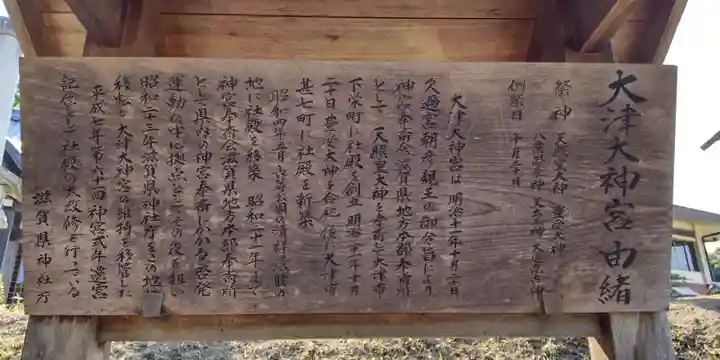 大津大神宮由緒
祭神 天照皇大神 豊受大神
八意思兼神
例祭日 十月二十日
大津大神宮は 明治十一年十月二十日
久邇宮朝彦親王の御令旨により
神宮奉斎会滋賀県地方本部奉斎所
として 天照皇大神を奉斎し大津市
下栄町に社殿を創立 明治
二十日 豊受大神を合祀し 後 大津市
甚七町に社殿を新築
昭和四年五月 公園の清祥
地に社殿を移築 昭和二十一年まで
神宮奉斎会滋賀県地方本部奉斎所
として県内の神宮奉斎にかかる啓発
運動の中心拠点としてその役を担い
昭和二十三年滋賀県神社庁をこの地に
移転し大津大神宮の維持を移管した
平成七年第六十一回神宮式年遷宮
記念として社殿の大改修を行っている
滋賀県神社庁